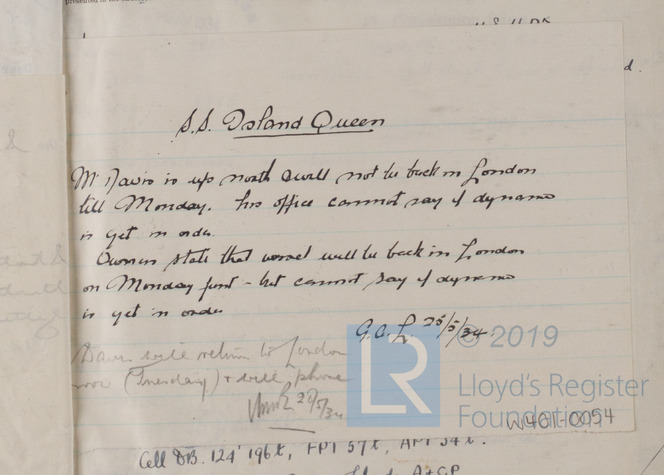 S.S. Island Queen
Mr Davis is up north & will not be back in London
till Monday. his office cannot say if dynamo
is yet in order.
Owners state that vessel will be back in London
on Monday first - but cannot say if dynamo
is yet in order
G.A.L 25/5/34.
Davis will return to London
(Tuesday) & will phone
/5/34
© 2019
Lloyd's Register
Foundation
LR
W401-0054
Cell DB. 124' 196t, FPT 57t, APT 54t.